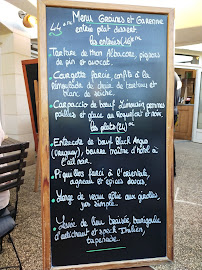 44€
Menu Graines et Garenne
entrée plat dessert
les entrées (16€)
Tartare de thon Albacore, pignons
de pin et avocat.
Courgette farcie confit à la
de chair de tourteau et
blanc de seiche.
Carpaccio de bœuf Limousin, pommes
pailles et glace au Roquefort et noix.
les plats (24€)
Entrecôte de bœuf Black Angus
(Uruguay), beurre maître d'hôtel à
l'ail noir.
Piquillos farci à l'orientale,
agneau et épices douces.
Longe de veau rôtie aux carottes,
jus simple.
Pavé de lieu braisé, barigoule
d'artichaut et speck Italien,
tapenade.